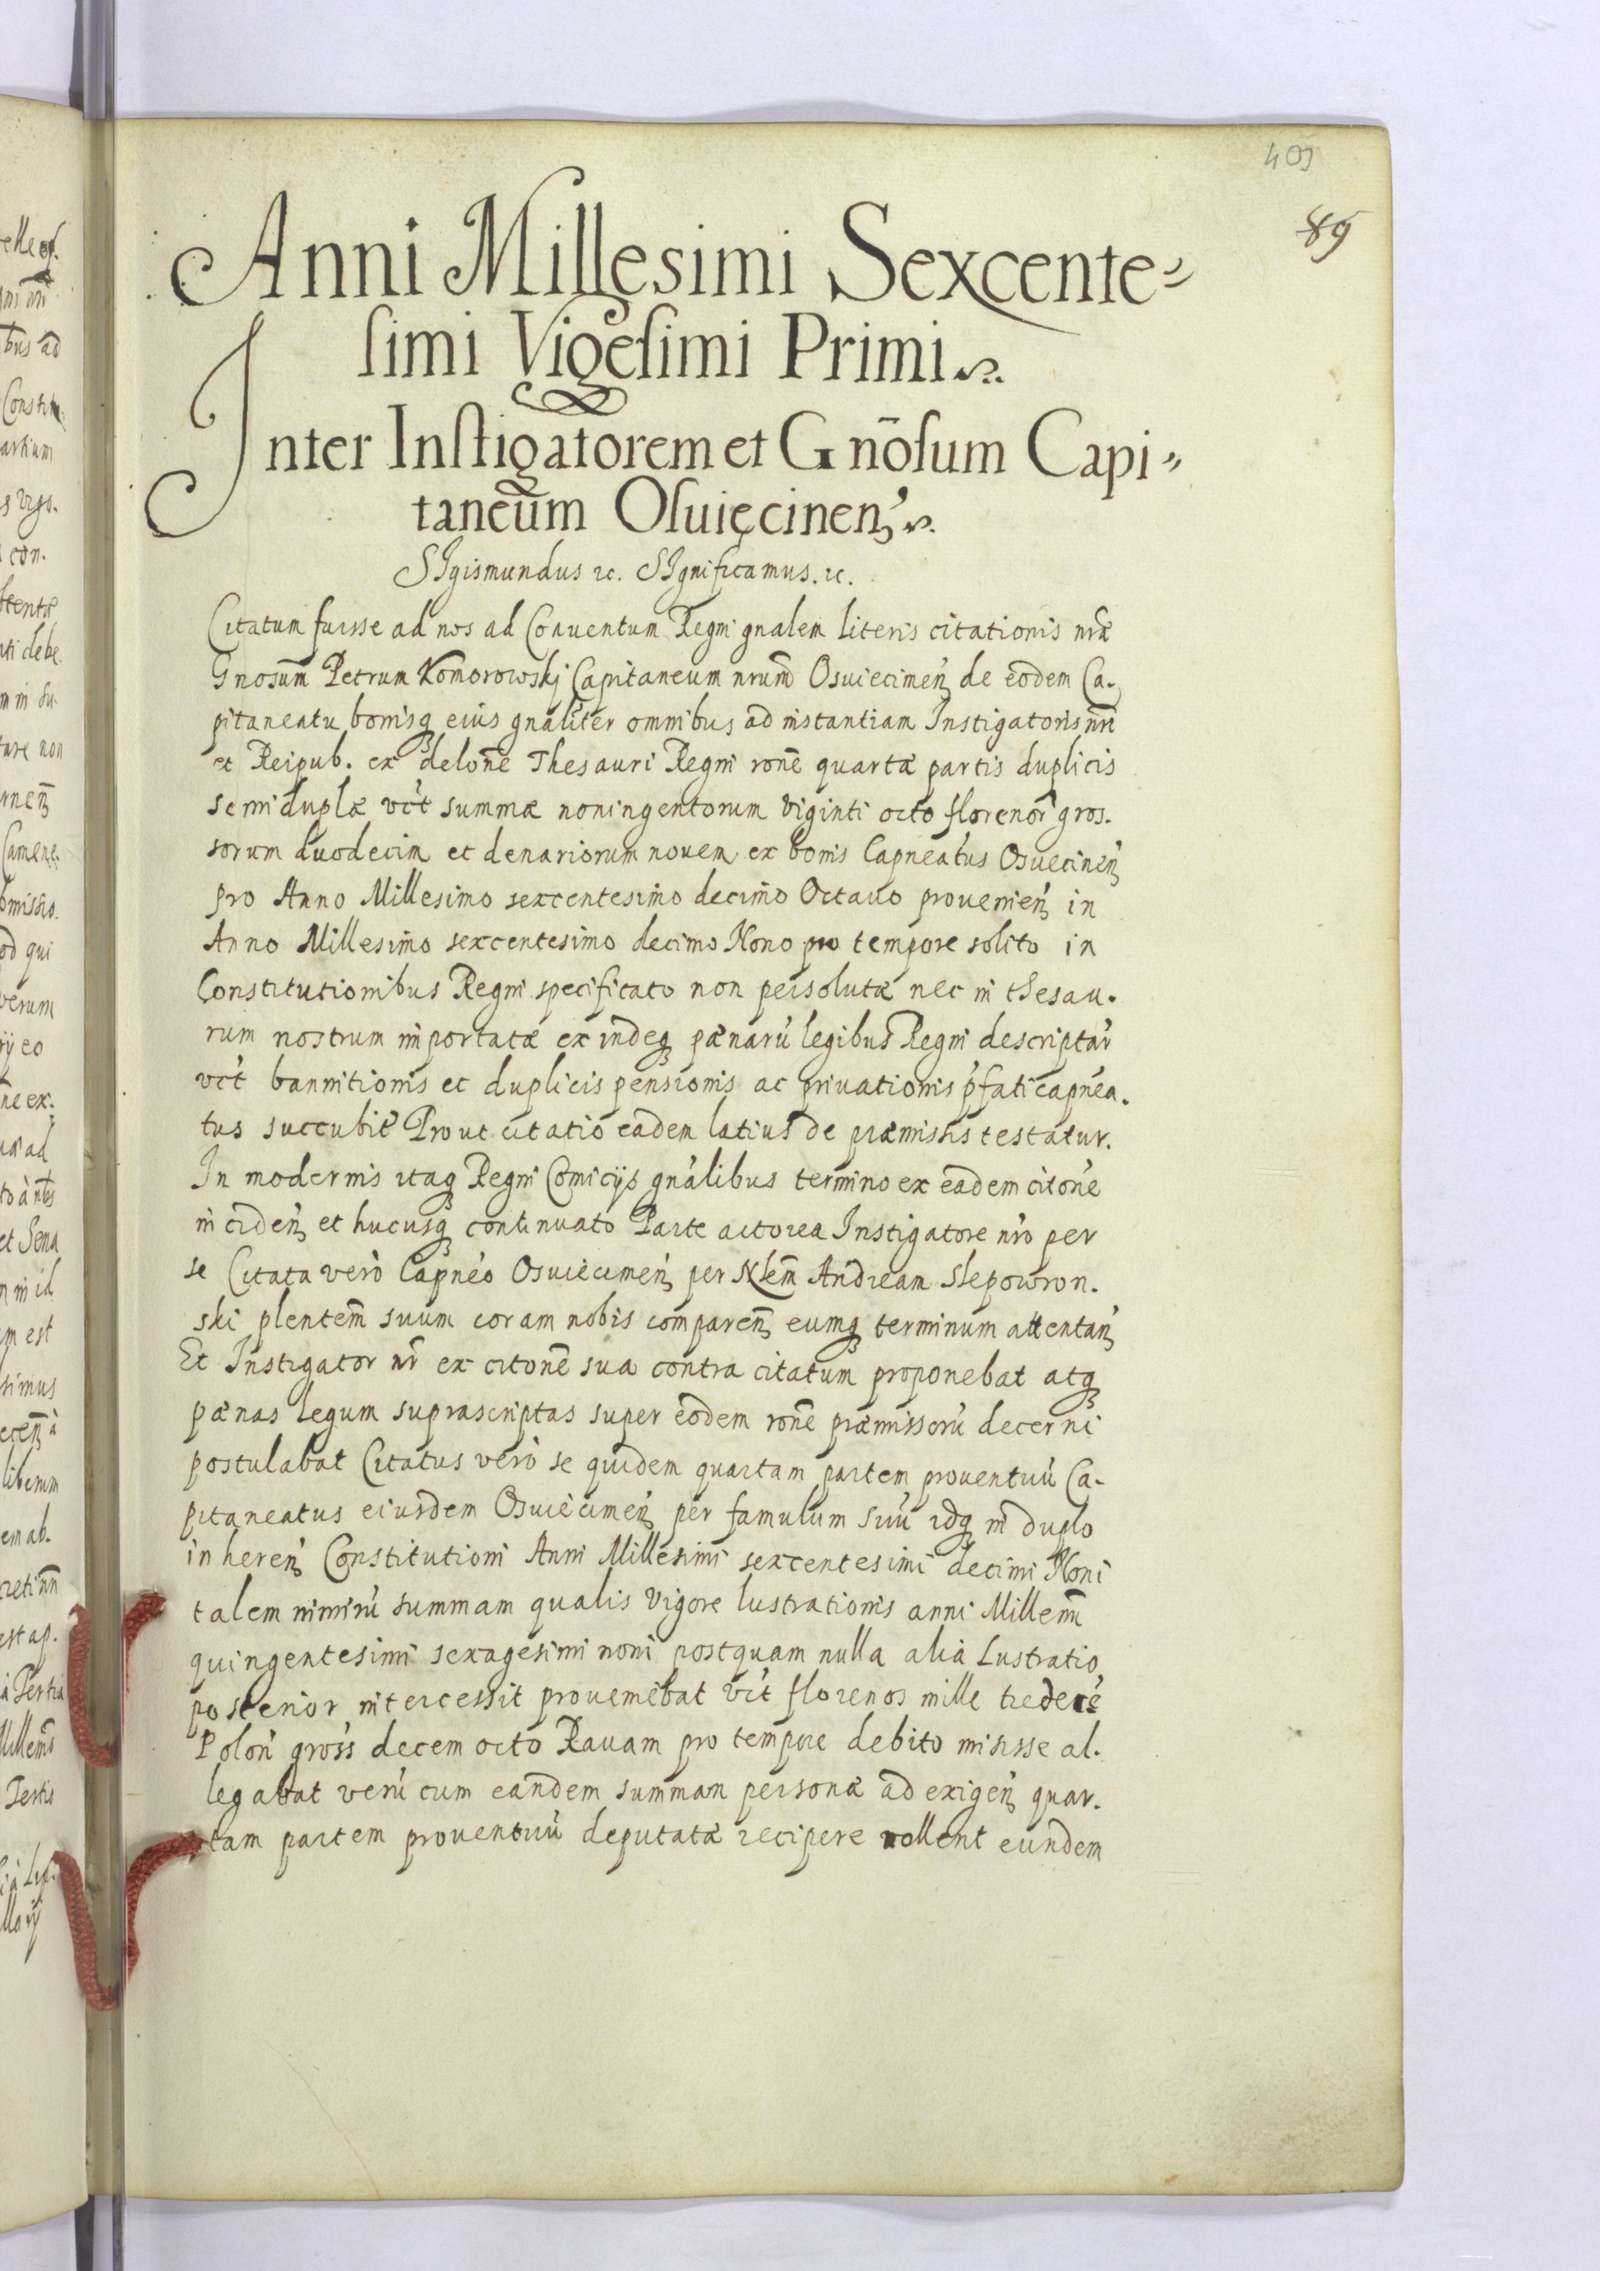 403
89
Anni Millesimi Sexcente„
ſimi Vigeſimi Primi
Inter Inſtigatorem et Gnōſum Capi„
taneum Oſuięcinen̄
SIgismundus ꝛc. SIgnificamus. ꝛc.
Citatum fuisse ad nos ad Conuentum Regni gnalem literis citationis nr̄æ
Gnosum̄ Petrum Komorowskj Capitaneum nrum̄ Osuiecimen̄ de eodem Ca-
pitaneatu bonisq₃ eius gnāliter omnibus ad instantiam Instigatoris nr̄i
et Reipub. ex delonē Thesauri Regni ronē quartæ partis duplicis
semiduplæ vc̄t summæ noningentorum viginti octo florenor̄ gros-
sorum duodecim et denariorum nouem ex bonis Capneatus Osuecinen̄
pro Anno Millesimo sexcentesimo decimo Octauo prouenien̄ in
Anno Millesimo sexcentesimo decimo Nono pro tempore solito in
Constitutionibus Regni specificato non persolutæ nec in thesau-
rum nostrum importatæ ex indeq₃ pænarū legibus Regni descriptar̄
vc̄t bannitionis et duplicis pensionis ac priuationis p̄fati capnea-
tus succubit̄ Prout citatio eadem latius de præmissis testatur.
In modernis itaq₃ Regni Comicijs gnālibus termino ex eadem citonē
inciden̄ et hucusq₃ continuato Parte actorea Instigatore nr̄o per
se Citata verò Capnēo Osuiecimen̄ per Nlem̄ Andream Slepowron-
ski plentem̄ suum coram nobis comparen̄ eumq₃ terminum attentan̄
Et Instigator nr̄ ex citonē sua contra citatum proponebat atq₃
pænas legum suprascriptas super eodem ronē præmissorū decerni
postulabat Citatus verò se quidem quartam partem prouentuū Ca-
pitaneatus eiusdem Osuiecimen̄ per famulum suū idq₃ in duplo
inheren̄ Constitutioni Anni Millesimi sexcentesimi decimi Noni
talem nimirū summam qualis vigore lustrationis anni Millemī
quingentesimi sexagesimi noni postquam nulla alia Lustratio
posterior intercessit proueniebat vc̄t florenos mille tredecē
Polon̄ gross̄ decem octo Rauam pro tempore debito misisse al-
legabat verū cum eandem summam personæ ad exigen̄ quar-
tam partem prouentuū deputatæ recipere nollent eundem